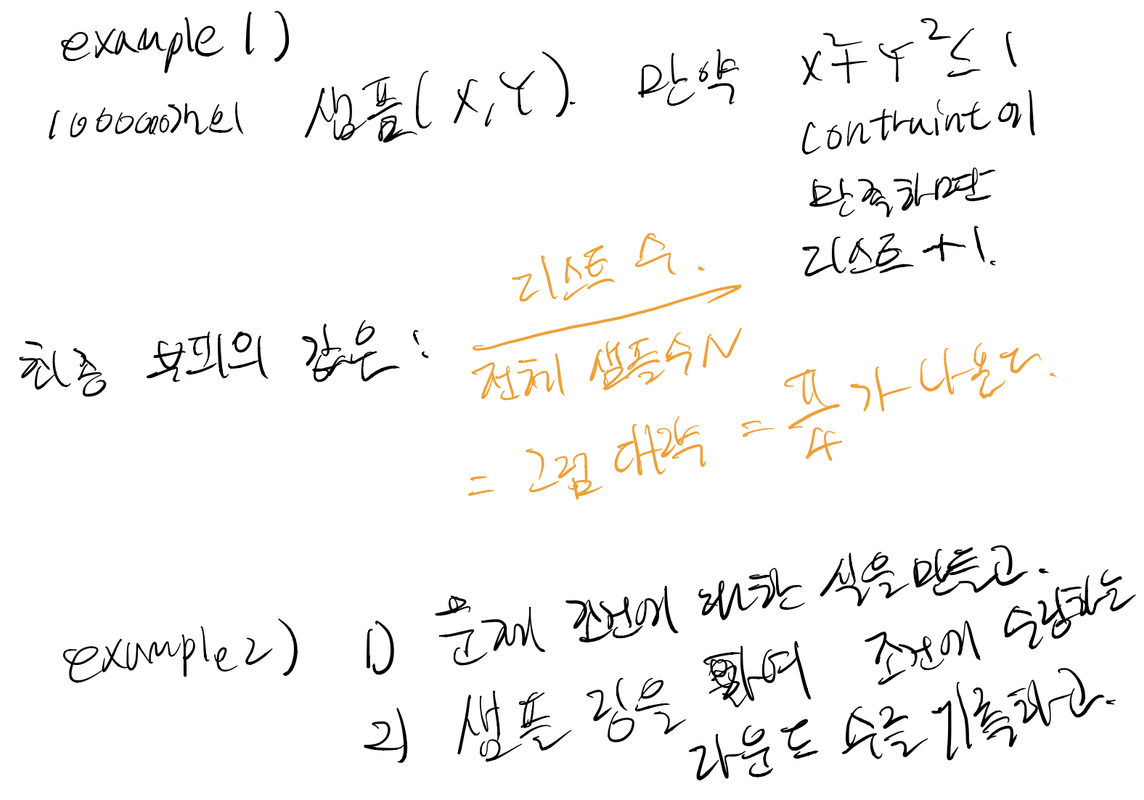 example 1)
1000000개의 샘플(X,Y). 만약 X²+Y²≤1
contraint에
만족하면
리스트 +1.
리스트 수.
최종 부피의 값은: 전체 샘플수N
= 그럼 대략 = π/4가 나온다.
example 2) 1) 문제 조건에 대한 식을 만들고.
2) 샘플링을 하여 조건에 수렴하는
라운드 수를 기록하고.